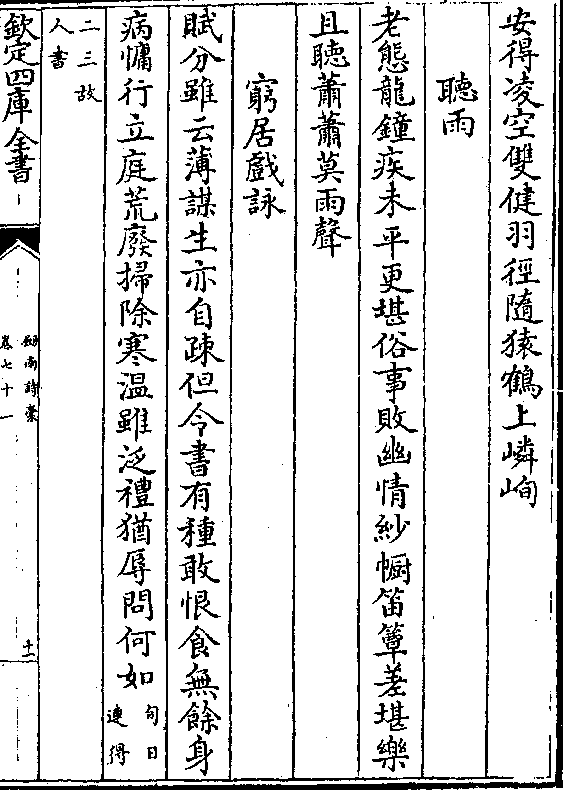 安得凌空雙健羽徑隨猿鶴上嶙峋
聽雨
老態龍鐘疾未平更堪俗事敗幽情紗幮笛簟差堪樂
且聽蕭蕭莫雨聲
窮居戲詠
賦分雖云薄謀生亦自疎但令書有種敢恨食無餘身
病慵行立庭荒廢掃除寒溫雖泛禮猶辱問何如旬日
連得
二三故
人書
欽定四庫全書
劍南詩稾
卷七十一
十一